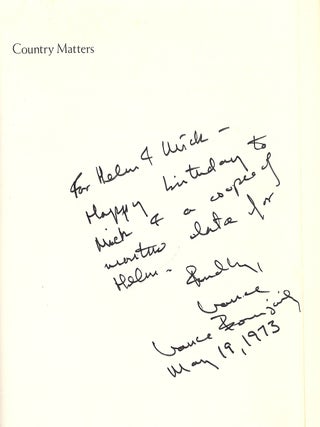 Country Matters
For Helen & Mick –
Happy birthday to
Mick & a couple of
months late for
Helen – Fondly,
Vance
Vance Bourjaily
May 19, 1973